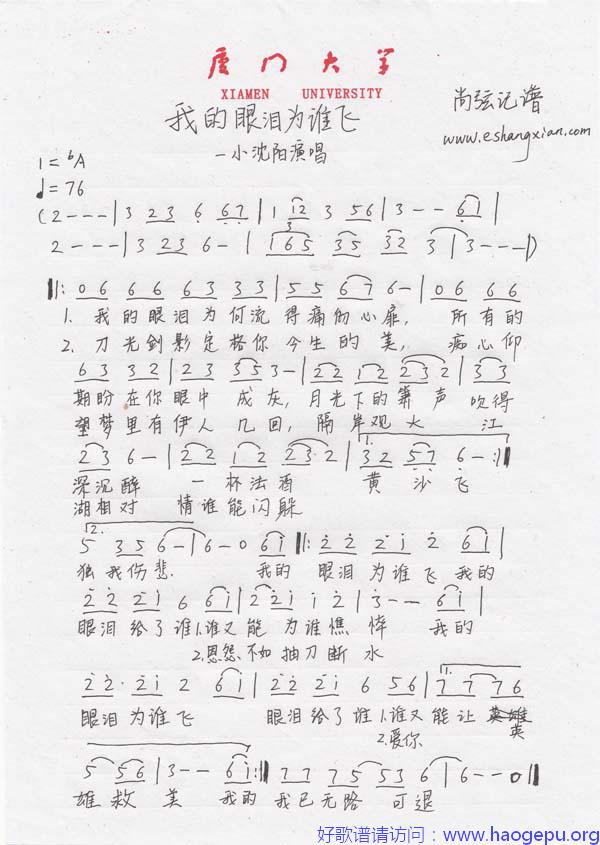 厦门大学
XIAMEN UNIVERSITY
我的眼泪为谁飞
尚弦记谱
www.eshangxian.com
—小沈阳演唱
1=ᵇA
♩=76
(2---|3 23 6 67|1 12 3 56|3--61|
2---|3 23 6-|165 35 32 3|3---|)
‖:06 66 63 33|55 676-|06 66
1. 我的眼泪为何流得痛彻心扉, 所有的
2. 刀光剑影定格你今生的美, 痴心仰
63 32|23 353-|22 12 232|33
期盼在你眼中成灰,月光下的箫声吹得
望梦里有伊人几回,隔岸观火 江
23 6-|22 12 23·2|32 57 6-:‖
1.
深沉醉 一杯浊酒 黄沙飞
湖相对 情谁能闪躲
2.
5 356-|6-0 61‖:22 21 2 61|
独我伤悲 我的 眼泪为谁飞 我的
22 21 6 61|221 12|3--61|
眼泪给了谁1.谁又能为谁憔悴 我的
2.恩怨不如抽刀断水
22· 21 2 61|22 21 6 56|77 76
1.
眼泪为谁飞 眼泪给了谁1.谁又能让英
2.爱你
5 56|3--61:‖77 75 53 6|6--0‖
雄救美 我的 我已无路可退
好歌谱请访问：www.haogepu.org